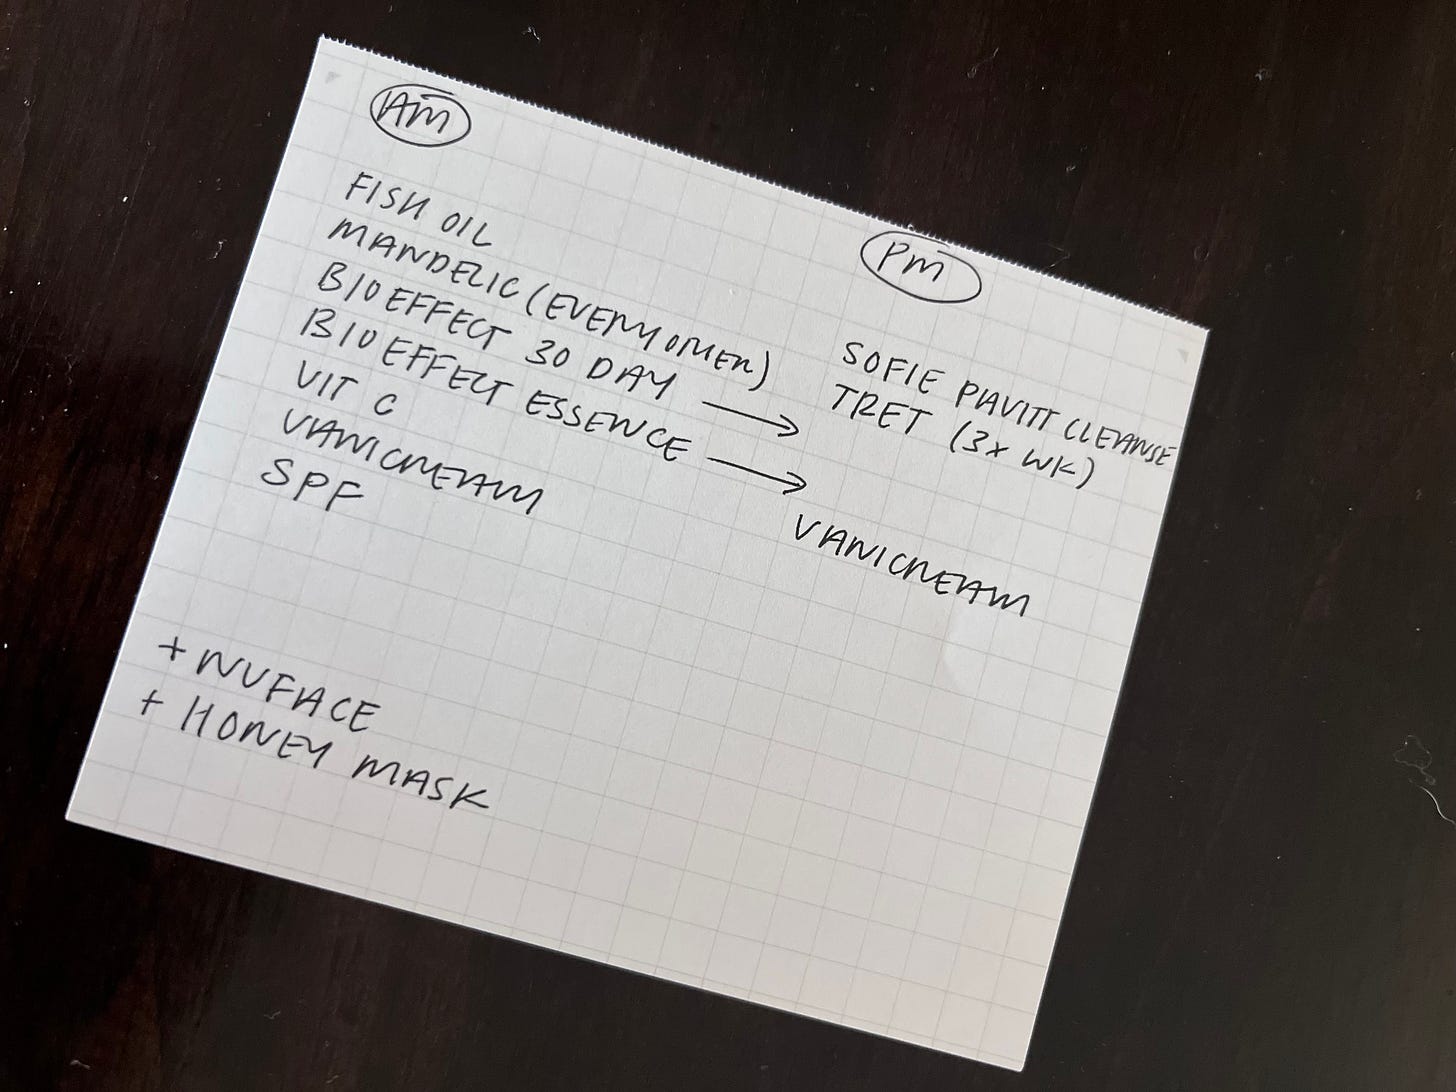 AM
FISH OIL
MANDELIC (EVERY OTHER)
BIOEFFECT 30 DAY →
BIOEFFECT ESSENCE →
VIT C
VANICREAM
SPF
+ NUFACE
+ HONEY MASK
PM
SOFIE PAVITT CLEANSE
TRET (3x WK)
VANICREAM